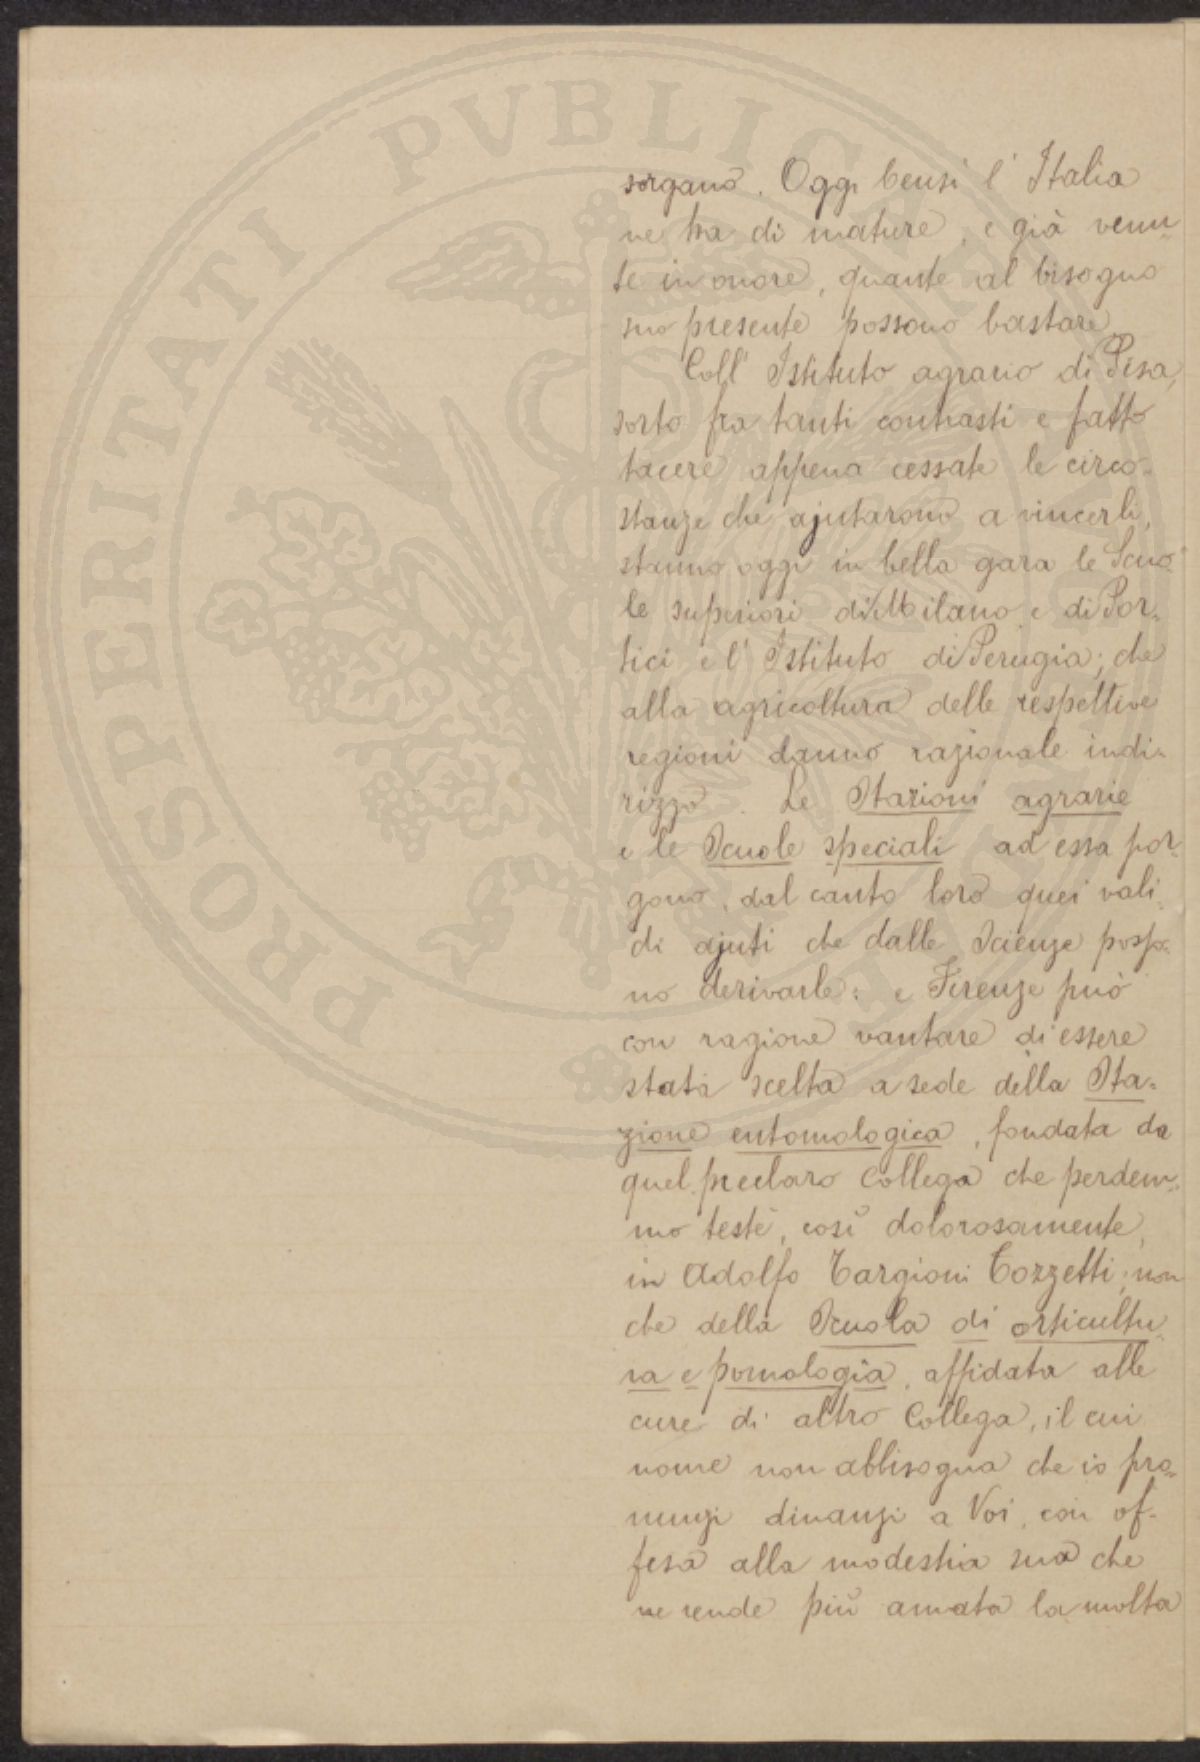 PROSPERITATI PVBLICAE
sorgano. Oggi bensì l'Italia
ne ha di mature, e già venu-
te in onore, quante al bisogno
suo presente possono bastare.
Coll'Istituto agrario di Pisa,
sorto fra tanti contrasti e fatto
tacere appena cessate le circo-
stanze che ajutarono a vincerli,
stanno oggi in bella gara le Scuo-
le superiori di Milano e di Por-
tici e l'Istituto di Perugia; che
alla agricoltura delle respettive
regioni danno razionale indi-
rizzo. Le Stazioni agrarie
e le Scuole speciali ad essa por-
gono, dal canto loro quei vali-
di ajuti che dalle Scienze posso-
no derivarle: e Firenze può
con ragione vantare di essere
stata scelta a sede della Sta-
zione entomologica, fondata da
quel preclaro Collega che perdem-
mo testé, così dolorosamente,
in Adolfo Targioni Tozzetti; non
che della Scuola di orticultu-
ra e pomologia, affidata alle
cure di altro Collega, il cui
nome non abbisogna che io pro-
nunzi dinanzi a Voi, con of-
fesa alla modestia sua che
ne rende più amata la molta